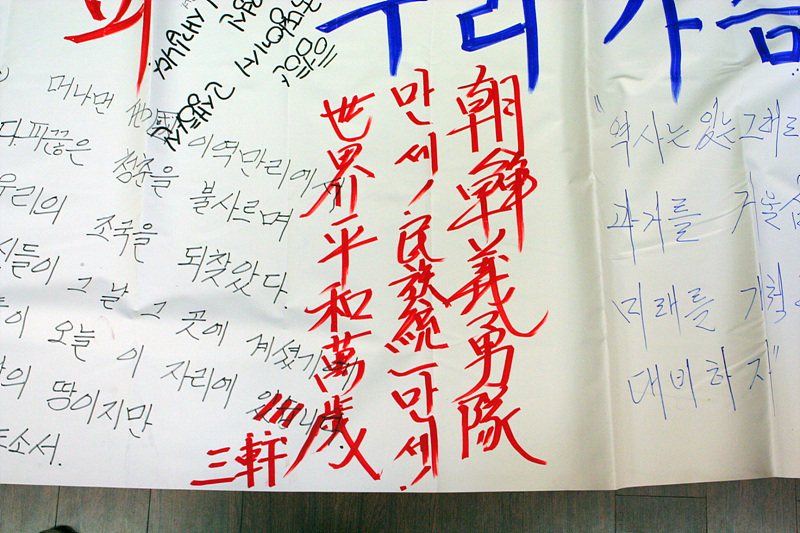 의 우리 가슴
머나먼 이역만리에서
다. 피끓은 청춘을 불사르며
우리의 조국을 되찾았다.
신들이 그 날 그 곳에 계셨기에
들이 오늘 이 자리에 있습니다.
의 땅이지만
소서.
朝鮮義勇隊
만세! 民族統一만세!
世界平和萬歲!!!
三軒
"역사는 있는 그대로
과거를 거울삼
미래를
대비하자"